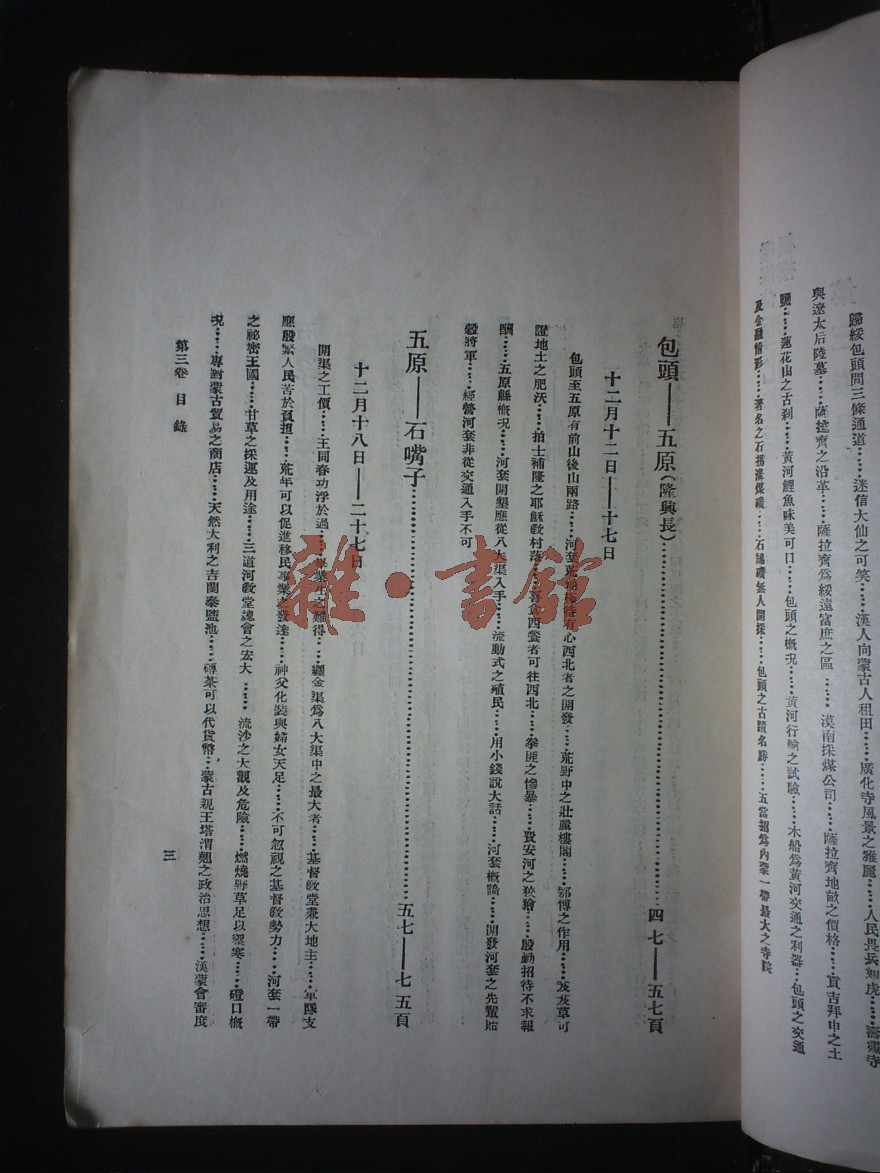 歸綏包頭間三條通道……迷信大仙之可笑……漢人向蒙古人租田……廣化寺風景之雅麗……人民畏兵如虎……
與遼太后陵墓……薩拉齊之沿革……薩拉齊爲綏遠富庶之區……漠南採煤公司……薩拉齊地畝之價格……賓吉拜申之土
鹽……蓮花山之古刹……黃河鯉魚味美可口……包頭之概況……黃河行輪之試驗……木船爲黃河交通之利器……包頭之交通
及金融情形……著名之石拐溝煤礦……石綿礦無人開採……包頭之古蹟名勝……五當招爲內蒙一帶最大之寺院
包頭——五原(隆興長)……四七——五七頁
十二月十二日——十七日
包頭至五原有前山後山兩路……河套荒地待有心西北者之開發……荒野中之壯麗樓閣……鄂博之作用……芨芨草可
證地土之肥沃……拍士補隆之耶穌敎村落……喜食西餐者可往西北……拳匪之慘暴……費安河之狹瑜……殷勤招待不求報
酬……五原縣概况……河套開墾應從八大渠入手……流動式之殖民……用小錢說大話……河套概論……開發河套之先輩貽
穀將軍……經營河套非從交通入手不可
五原——石嘴子……五七——七五頁
十二月十八日——二十七日
開渠之工價……王同春功浮於過……畢業生之難得……纒金渠爲八大渠中之最大者……基督敎堂兼大地主……軍隊支
應殷繁人民苦於負担……荒年可以促進移民事業之發達……神父化裝與婦女天足……不可忽視之基督敎勢力……河套一帶
之祕密王國……甘草之採運及用途……三道河敎堂總會之安大……流沙之大觀及危險……燃燒野草足以禦寒……磴口概
況……專對蒙古貿易之商店……天然大利之吉蘭泰鹽池……磚茶可以代貨幣……蒙古親王塔渭翹之政治思想……漢蒙會審度
第三卷 目錄
三
雜·書館